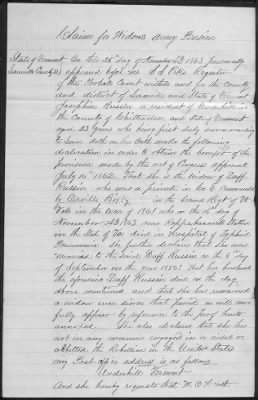 Claim for Widows Army Pension
State of Vermont On this 25th day of November A.D 1863 personally
Lamoille County SS appeared before me S. S. Pike Register
of the Probate Court within and for the County
and district of Lamoille and State of Vermont
Josephine Russin a resident of Underhill in
the County of Chittenden and State of Vermont
aged 23 years who being first duly sworn according
to Law doth on her oath make the following
declaration in order to obtain the benefit of the
provision made by the act of Congress approved
July 14th 1862 That she is the widow of Zuff
Russin who was a private in Co E commanded
by Orville Bixby in the Second Regt of Vt
Vols in the war of 1861 who on the day of
November A.D 1863 near Rappahannock Station
in the State of Va died in Hospital of Typhoid
Pneumonia She further declares that she was
married to the said Zuff Russin on the 6 day
of September in the year 1856 That her husband
the aforesaid Zuff Russin died on the day
above mentioned and that she has remained
a widow ever since that period as will more
fully appear by reference to the proof hereto
annexed She also declares that she has
not in any manner engaged in or aided or
abbetted the Rebellion in the United States
my Post office address is as follows
Underhill Vermont
And she hereby requests that M. O.